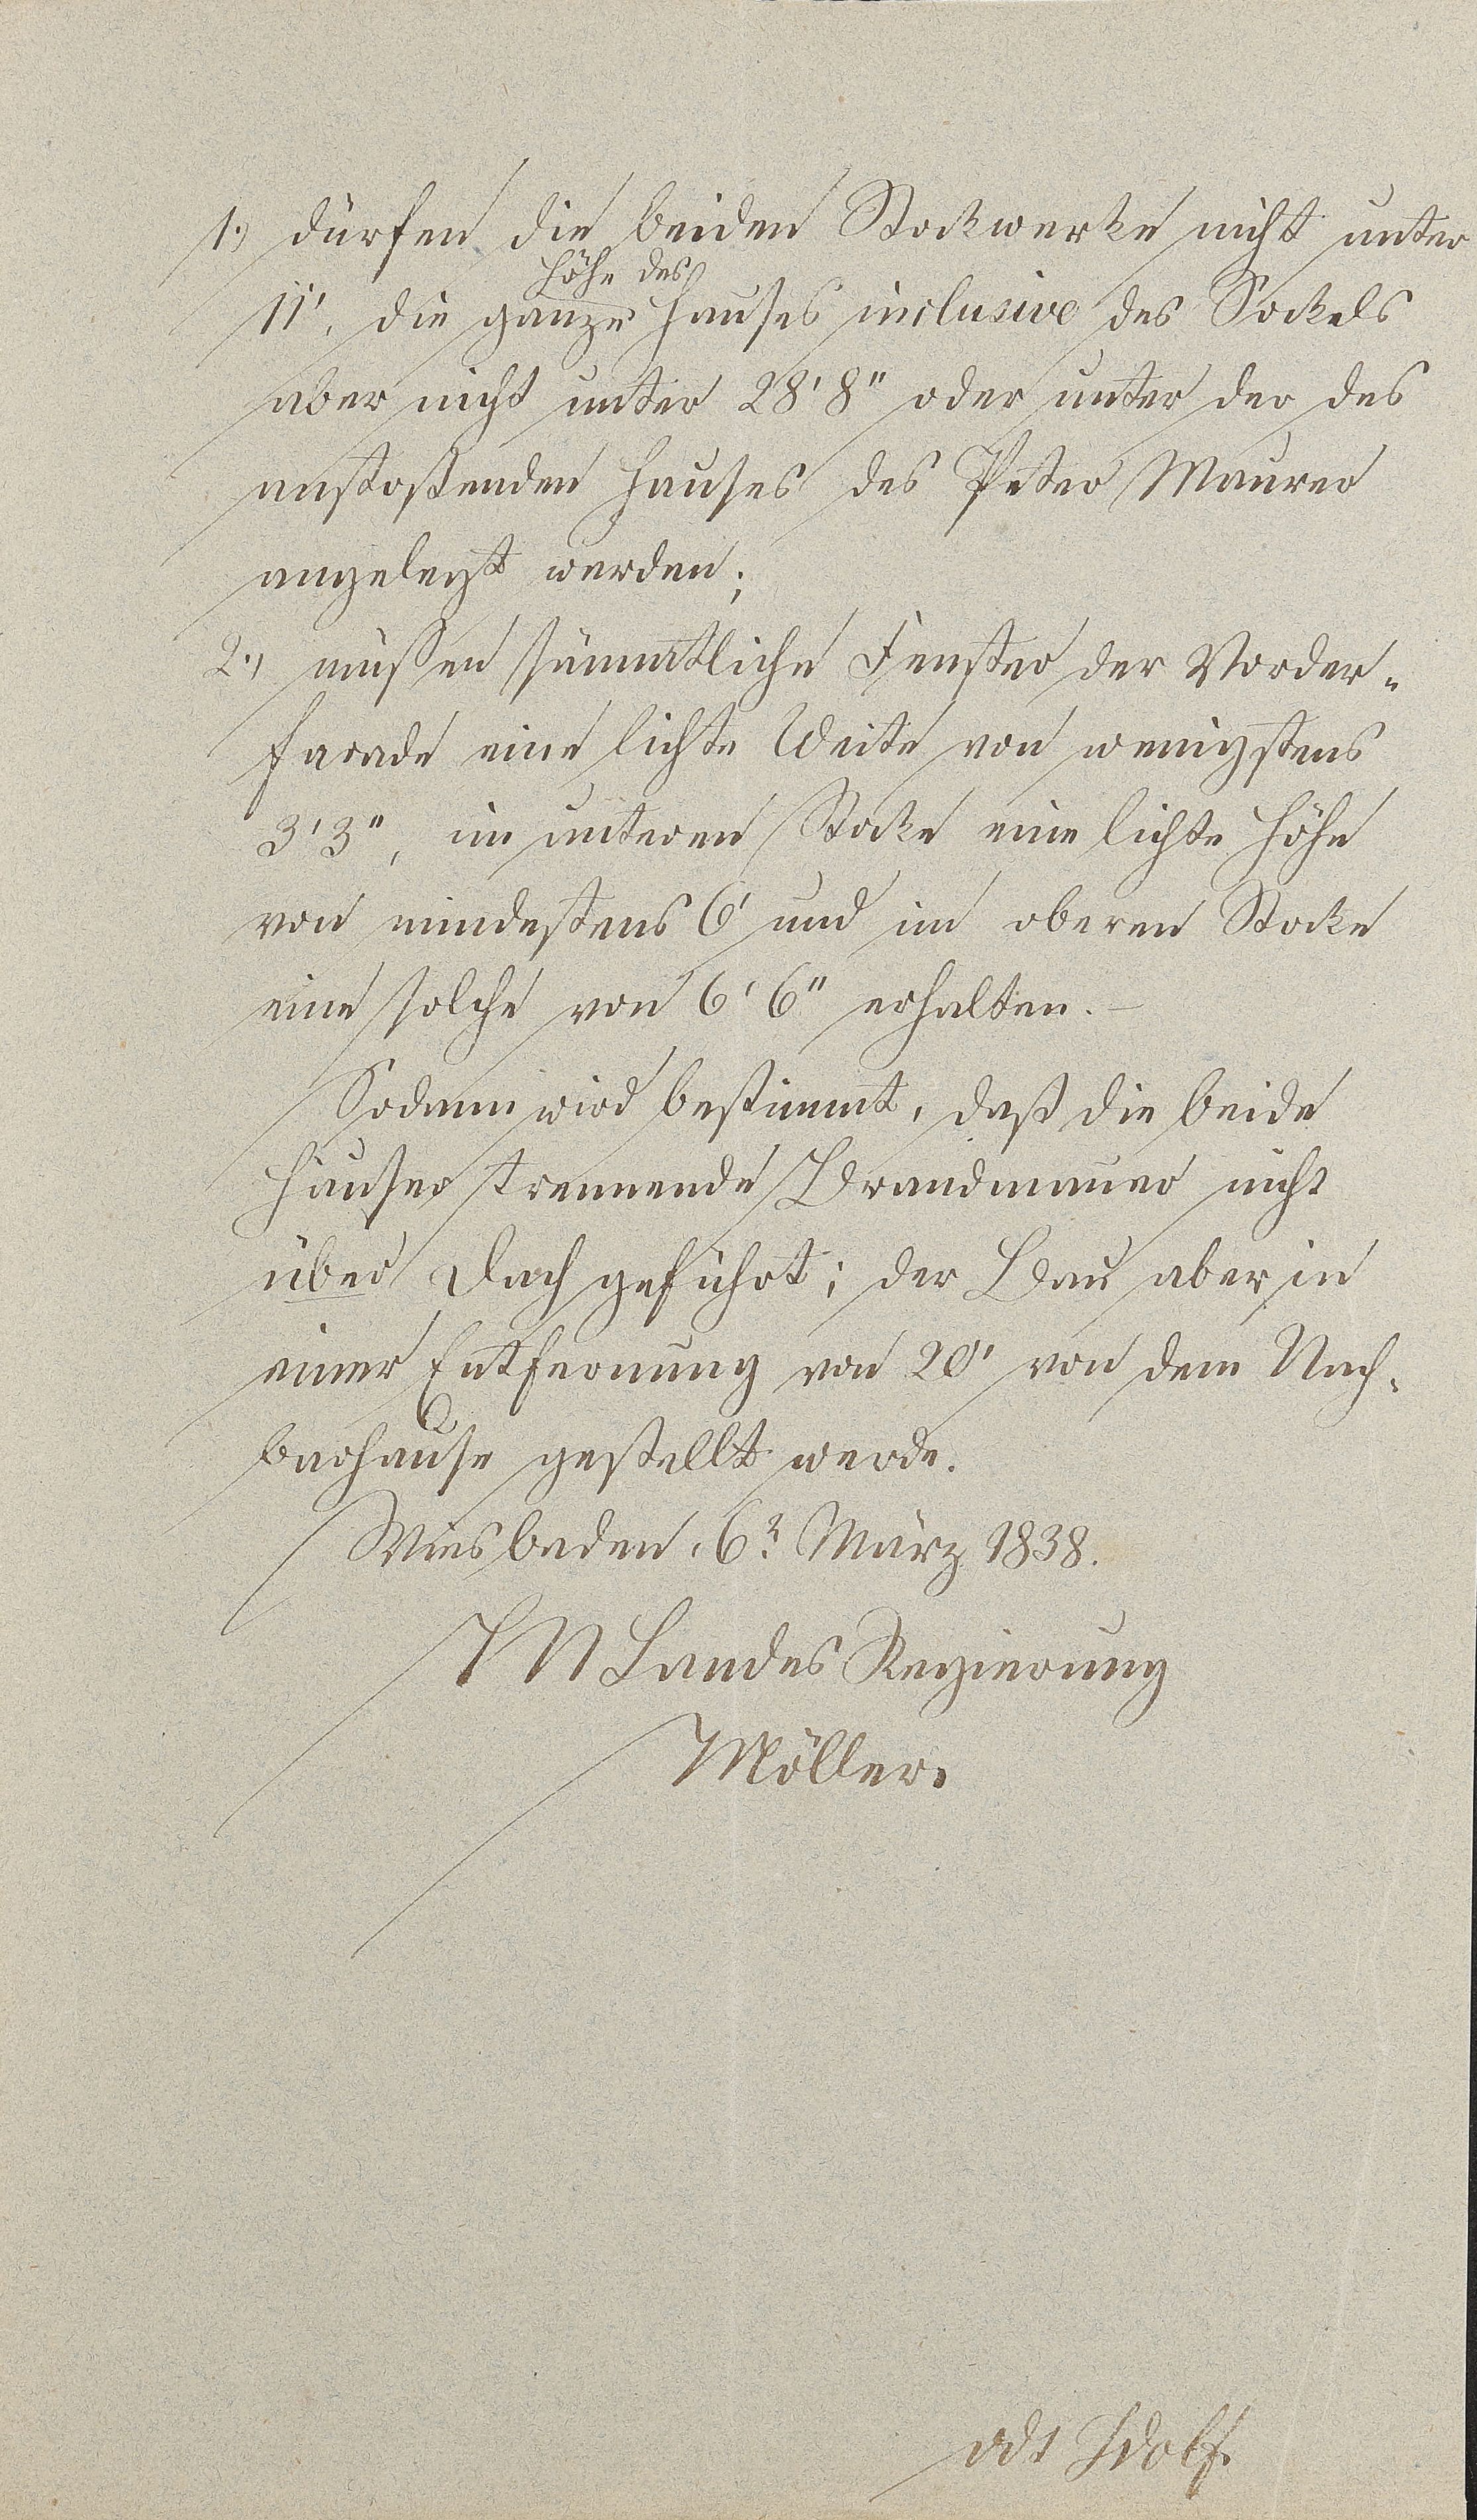 1.) dürfen die beiden Stockwerke nicht unter
höhe des
11', die ganze Hauses inclusive des Sockels
aber nicht unter 28' 8" oder unter der des
anstoßenden Hauses des Peter Maurer
angelegt werden;
2.) müssen sämmtliche Fenster der Vorder-
facade eine lichte Weite von wenigstens
3' 3", im unteren Stocke eine lichte Höhe
von mindestens 6' und im oberen Stocke
eine solche von 6' 6" erhalten. -
Sodann wird bestimmt, daß die beide
Häuser trennende Brandmauer nicht
über Dach geführt; der Bau aber in
einer Entfernung von 20' von dem Nach-
barhause gestellt werde.
Wiesbaden, 6r März 1838.
HN Landes Regierung
Möller.
vdt